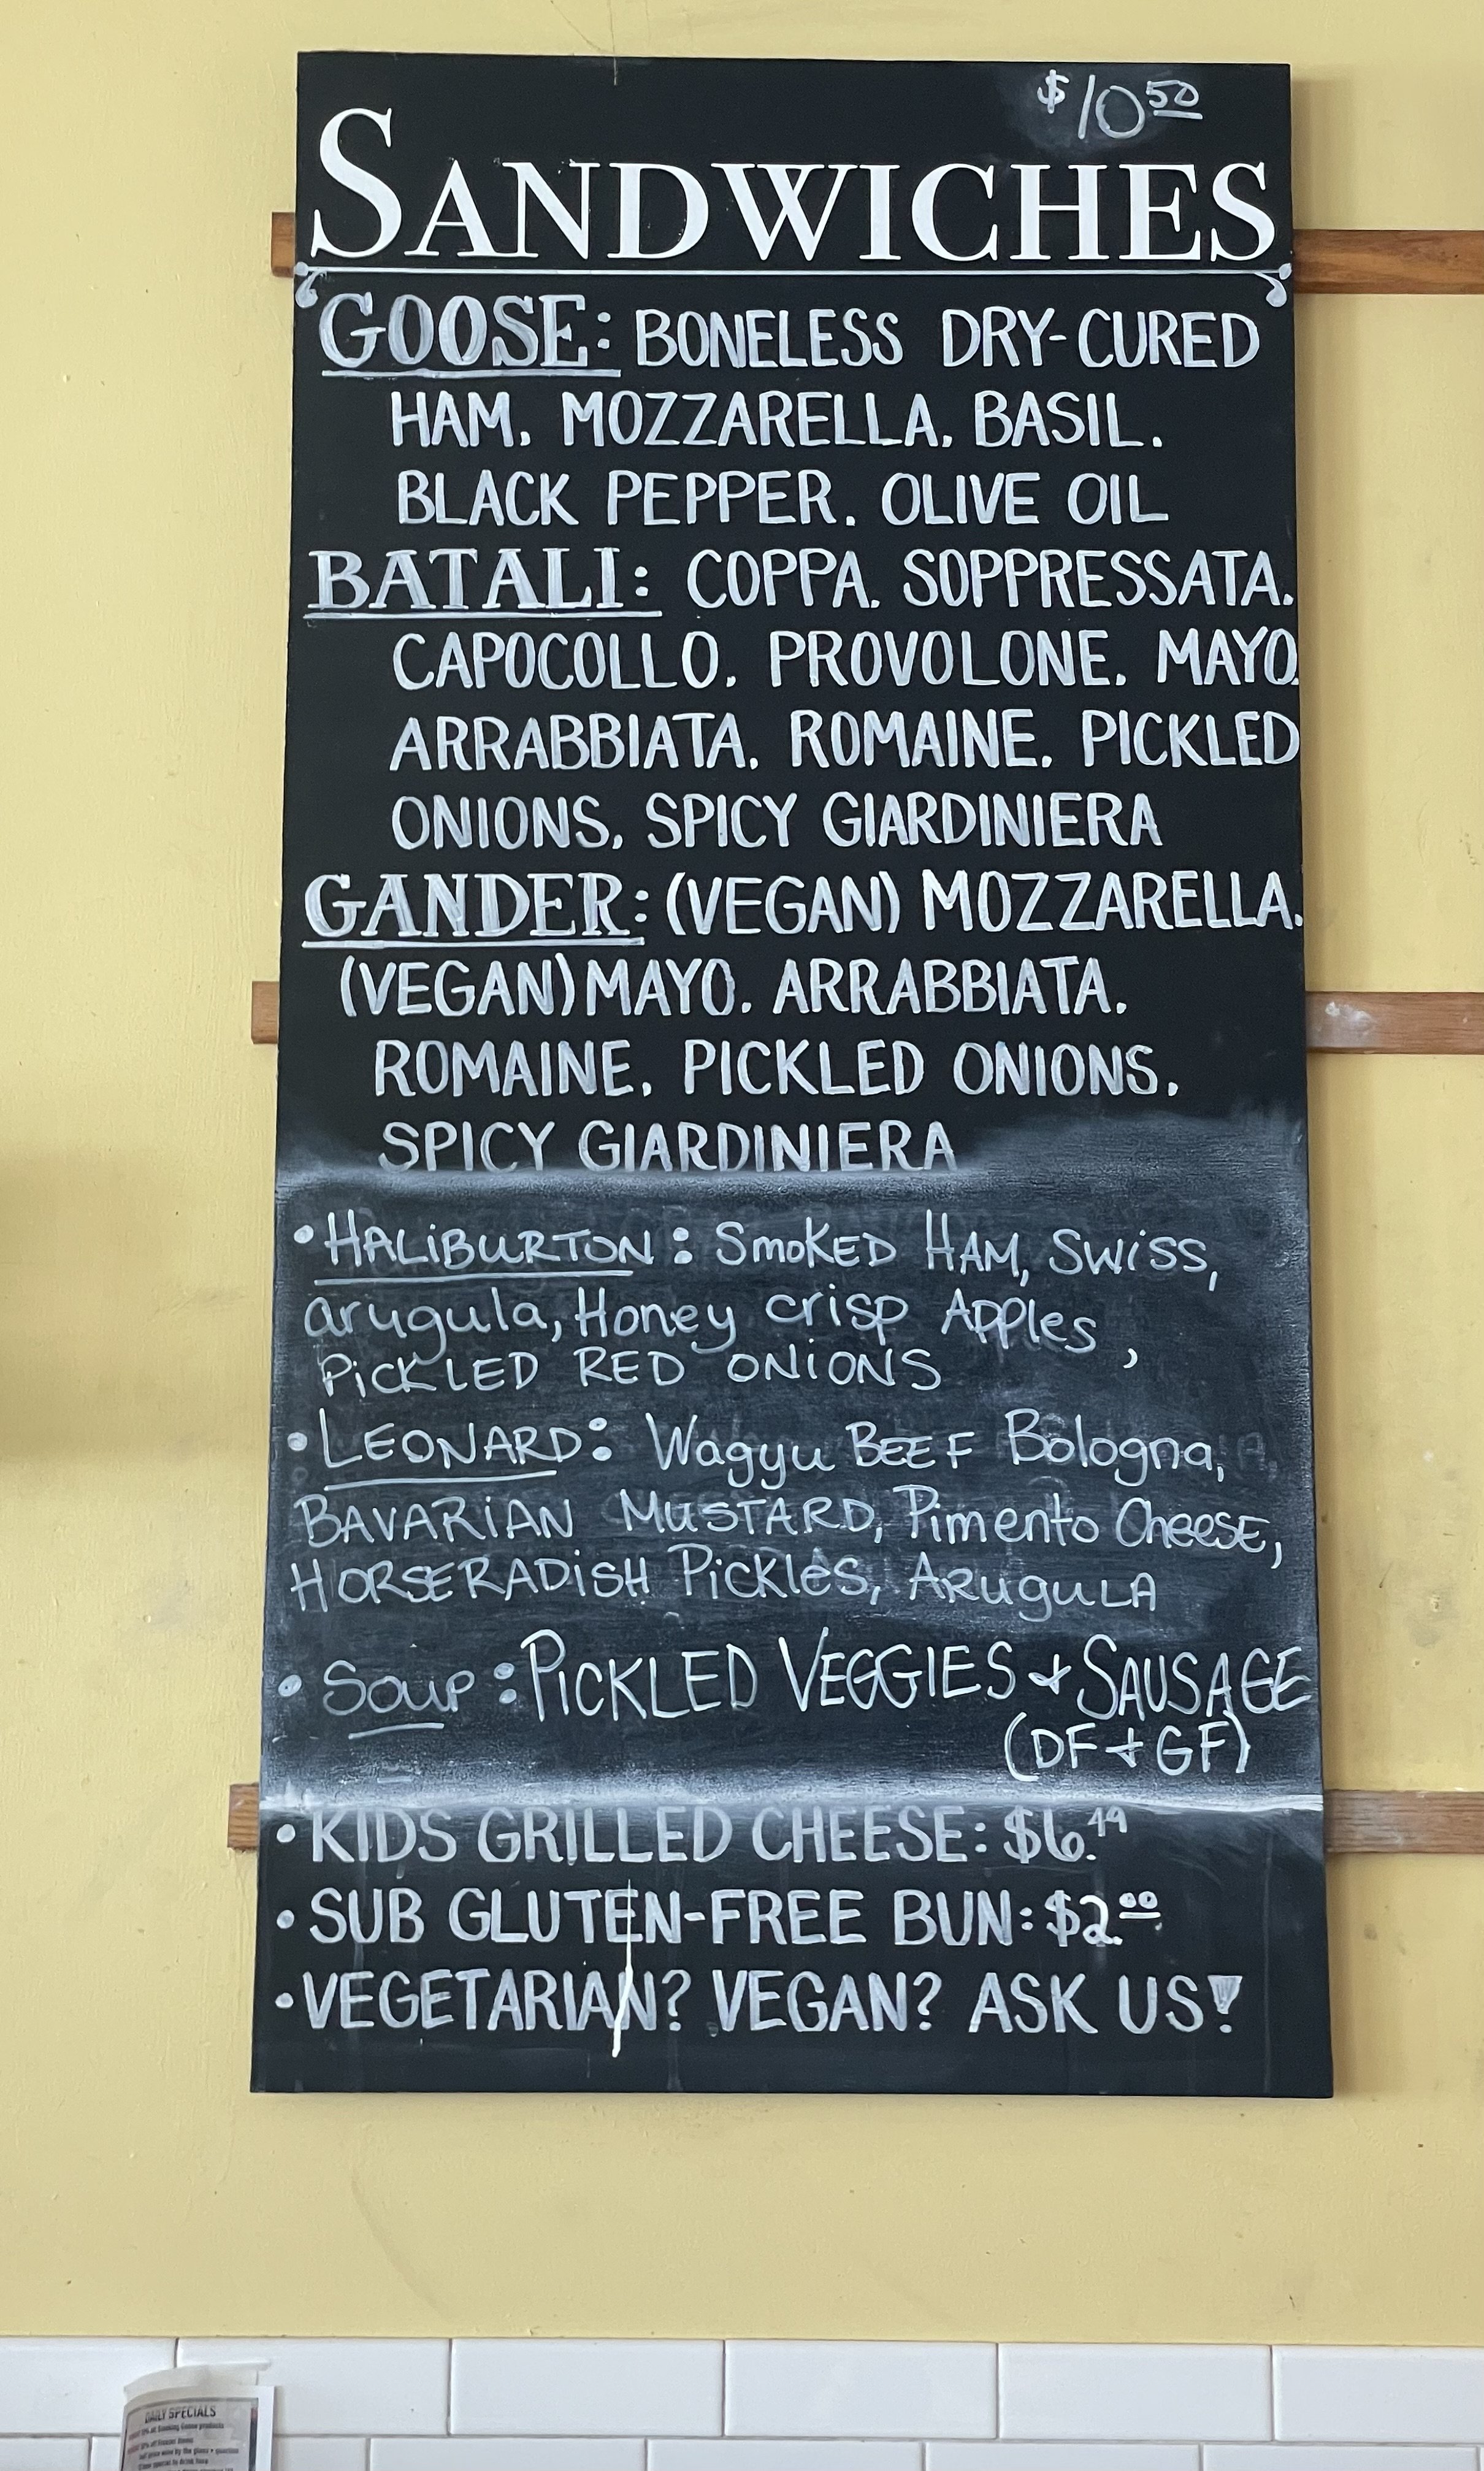 $10.50
SANDWICHES
GOOSE: BONELESS DRY-CURED
HAM, MOZZARELLA, BASIL,
BLACK PEPPER, OLIVE OIL
BATALI: COPPA, SOPPRESSATA,
CAPOCOLLO, PROVOLONE, MAYO,
ARRABBIATA, ROMAINE, PICKLED
ONIONS, SPICY GIARDINIERA
GANDER: (VEGAN) MOZZARELLA,
(VEGAN) MAYO, ARRABBIATA,
ROMAINE, PICKLED ONIONS,
SPICY GIARDINIERA
• HALIBURTON: SMOKED HAM, SWISS,
arugula, Honey crisp Apples,
PICKLED RED ONIONS
• LEONARD: Wagyu BEEF Bologna,
BAVARIAN MUSTARD, Pimento Cheese,
HORSERADISH Pickles, ARugulA
• Soup: PICKLED VEGGIES + SAUSAGE
(DF + GF)
• KIDS GRILLED CHEESE: $6.49
• SUB GLUTEN-FREE BUN: $2.00
• VEGETARIAN? VEGAN? ASK US!
DAILY SPECIALS